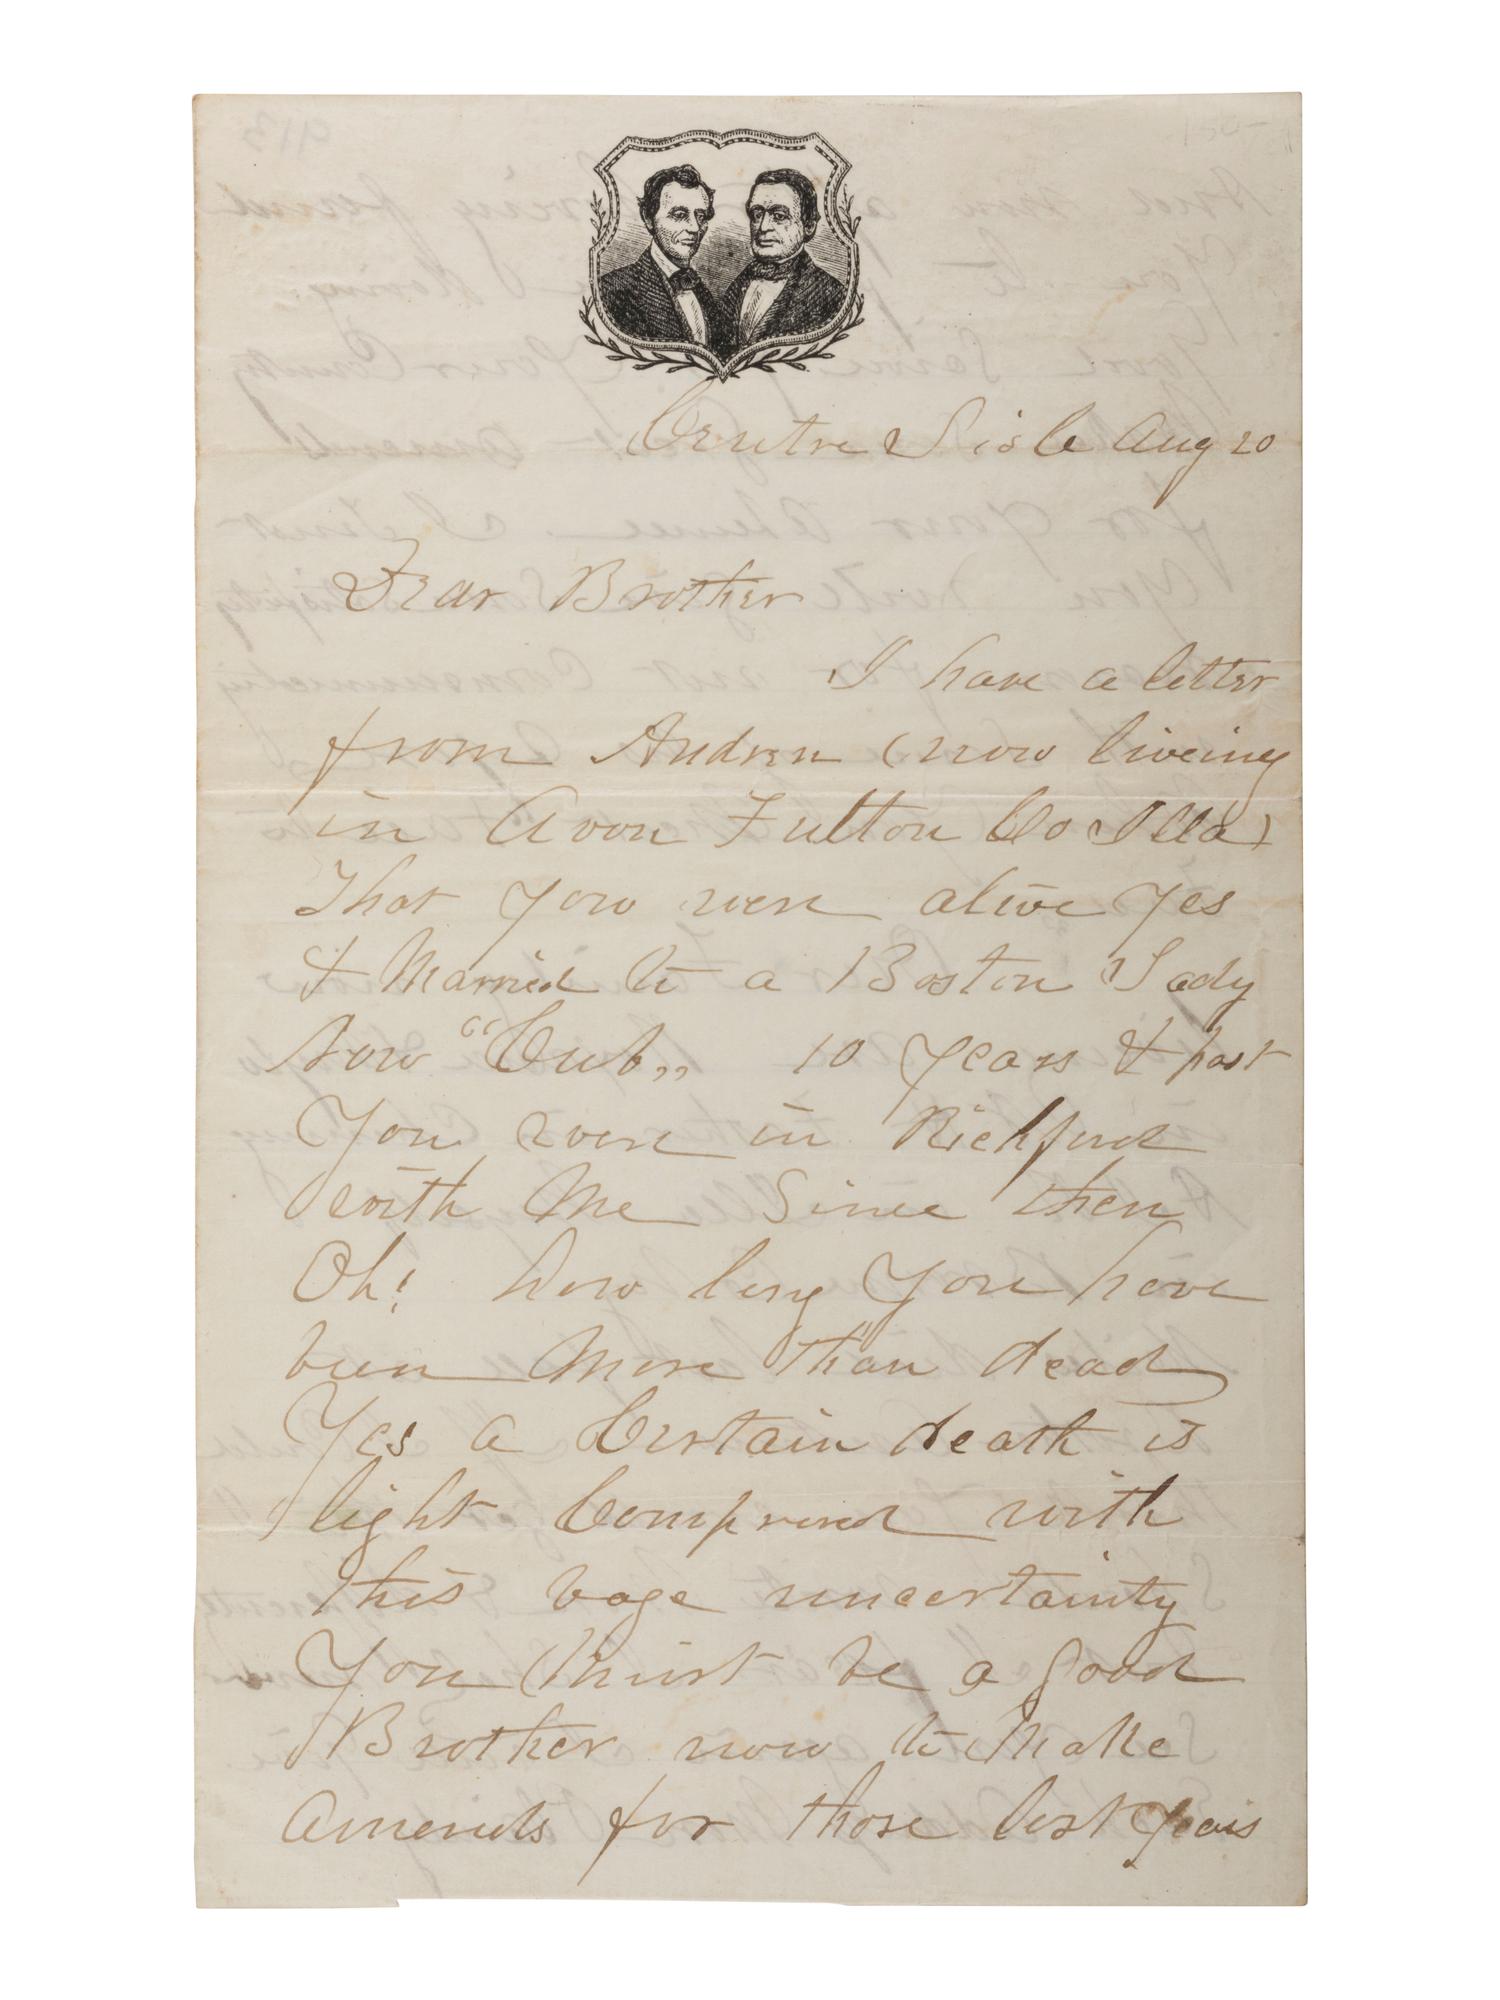 Centre Lisle Aug 20
Dear Brother
I have a letter
from Andrew (now liveing
in Avon Fulton Co Illa)
That you were alive Yes
& Married to a Boston Lady
now "Cub" 10 years & past
You were in Richford
with Me Since then
Oh! how long you have
been More than dead
Yes a Certain death is
light Compared with
this vage uncertainty
You Must be a good
Brother now to Make
Amends for those lost years